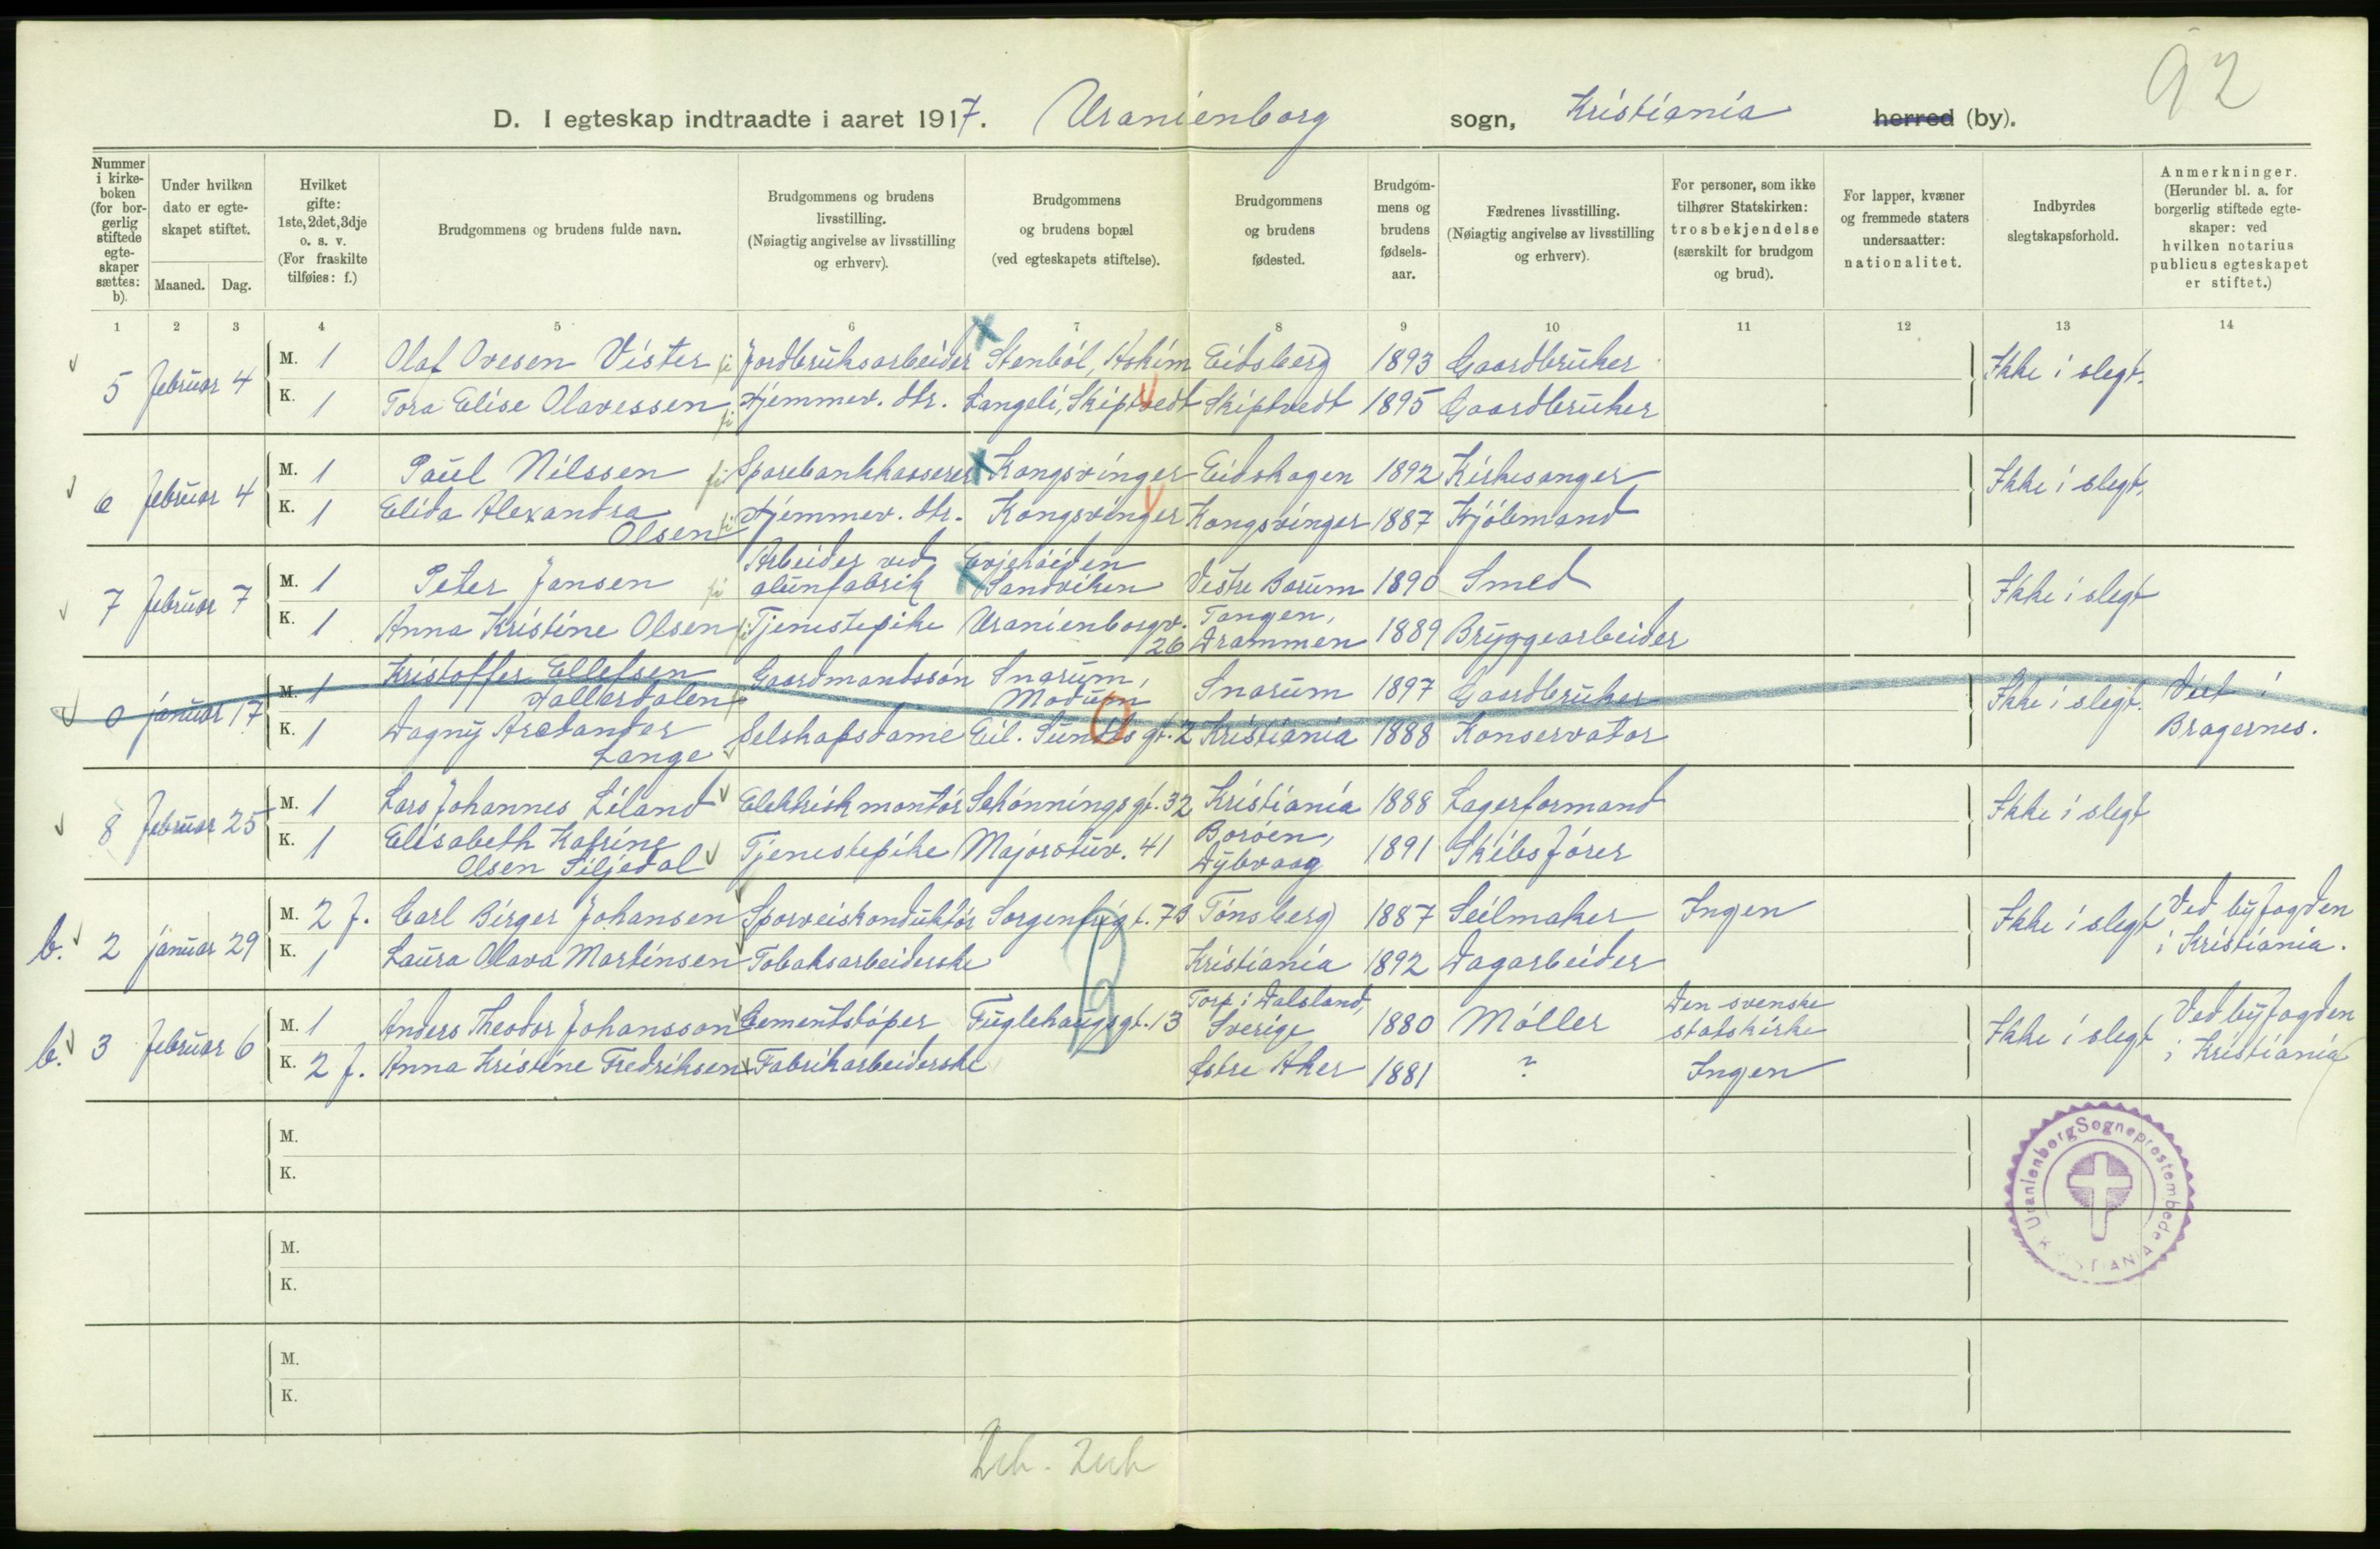 92
D. I egteskap indtraadte i aaret 1917. Uranienborg sogn, Kristiania herred (by).
Nummer i kirke-boken (for bor-gerlig stiftede egte-skaper sættes: b).
Under hvilken dato er egte-skapet stiftet.
Maaned. Dag.
Hvilket gifte: 1ste, 2det, 3dje o. s. v. (For fraskilte tilføies: f.)
Brudgommens og brudens fulde navn.
Brudgommens og brudens livsstilling. (Nøiagtig angivelse av livsstilling og erhverv).
Brudgommens og brudens bopæl (ved egteskapets stiftelse).
Brudgommens og brudens fødested.
Brudgom-mens og brudens fødsels-aar.
Fædrenes livsstilling. (Nøiagtig angivelse av livsstilling og erhverv).
For personer, som ikke tilhører Statskirken: trosbekjendelse (særskilt for brudgom og brud).
For lapper, kvæner og fremmede staters undersaatter: nationalitet.
Indbyrdes slegtskapsforhold.
Anmerkninger. (Herunder bl. a. for borgerlig stiftede egte-skaper: ved hvilken notarius publicus egteskapet er stiftet.)
1 2 3 4 5 6 7 8 9 10 11 12 13 14
5 februar 4 M. 1 Olaf Ovesen Vister Jordbruksarbeider Stenböl, Askim Eidsberg 1893 Gaardbruker Ikke i slegt.
K. 1 Tora Elise Olavessen Hjemmev. dtr. Langeli, Skiptvedt Skiptvedt 1895 Gaardbruker
6 februar 4 M. 1 Paul Nilssen Sparebankkasserer Kongsvinger Eidskogen 1892 Kirkesanger Ikke i slegt.
K. 1 Elida Alexandra Olsen Hjemmev. dtr. Kongsvinger Kongsvinger 1887 Kjöbmand
7 februar 7 M. 1 Peter Jansen Arbeider ved alunfabrik Sandviken Vestre Bærum 1890 Smed Ikke i slegt
K. 1 Anna Kristine Olsen Tjenestepike Uranienborgv. 26 Tangen, Drammen 1889 Bryggearbeider
0 januar 17 M. 1 Kristoffer Ellefsen Hallardalen Gaardmandssön Snarum, Modum Snarum 1897 Gaardbruker Ikke i slegt. Viet i Bragernes.
K. 1 Dagny Arctander Lange Selskapsdame Eil. Sundts gt. 2 Kristiania 1888 Konservator
8 februar 25 M. 1 Lars Johannes Liland Elektrisk montör Schönningsgt. 32 Kristiania 1888 Lagerformand Ikke i slegt
K. 1 Elisabeth Katrine Olsen Siljedal Tjenestepike Majorstuv. 41 Boröen, Dybvaag 1891 Skibsförer
b. 2 januar 29 M. 2 f. Carl Birger Johansen Sporveiskonduktör Sorgenfrigt. 7B Tönsberg 1887 Seilmaker Ingen Ikke i slegt Ved byfogden i Kristiania.
K. 1 Laura Olava Martinsen Tobaksarbeiderske Kristiania 1892 Dagarbeider
b. 3 februar 6 M. 1 Anders Theodor Johansson Cementstöper Fuglehaugsgt. 13 Torp i Dalsland, Sverige 1880 Möller Den svenske statskirke Ikke i slegt Ved byfogden i Kristiania
K. 2 f. Anna Kristine Fredriksen Fabrikarbeiderske Östre Aker 1881 ? Ingen
M.
K.
M.
K.
M.
K.
Uranienborg Sogneprestembede
KRISTIANIA